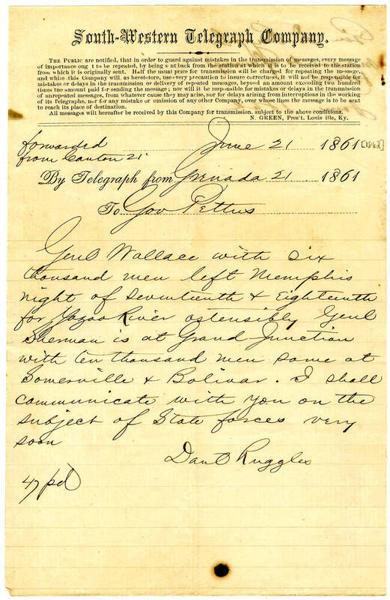 South-Western Telegraph Company.
THE PUBLIC are notified, that in order to guard against mistakes in the transmission of messages, every message
of importance ought to be repeated, by being sent back from the station at which it is to be received to the station
from which it is originally sent. Half the usual price for transmission will be charged for repeating the message,
and while this Company will as heretofore, use every precaution to insure correctness, it will not be responsible for
mistakes or delays in the transmission or delivery of repeated messages, beyond an amount exceeding two hundred
times the amount paid for sending the message; nor will it be responsible for mistakes or delays in the transmission
of unrepeated messages, from whatever cause they may arise, nor for delays arising from interruptions in the working
of its Telegraphs, nor for any mistake or omission of any other Company, over whose lines the message is to be sent
to reach its place of destination.
All messages will hereafter be received by this Company for transmission, subject to the above conditions.
N. GREEN, Pres't. Louisville, Ky.
forwarded
from Canton 21
June 21 1861
By Telegraph from Grenada 21 1861
To Gov Pettus
Genl Wallace with six
thousand men left Memphis
night of Seventeenth & Eighteenth
for Yazoo River ostensibly Genl
Sherman is at Grand Junction
with ten thousand men some at
Somerville & Bolivar. I shall
communicate with you on the
subject of State forces very
soon
Danl Ruggles
47 pd